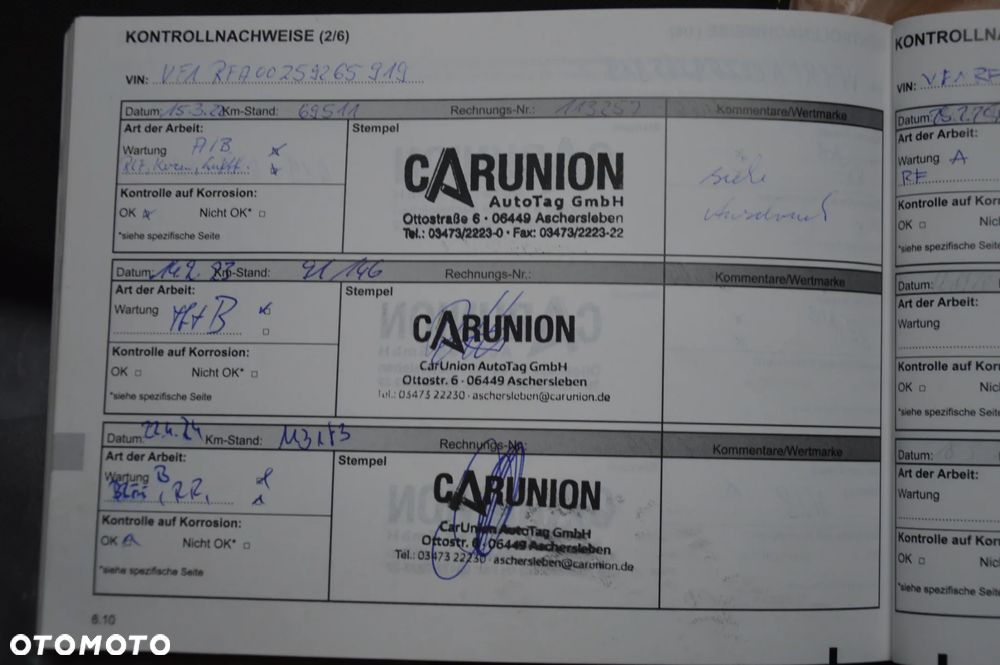 KONTROLLNACHWEISE (2/6)
VIN: VF1 RFA00259265919
Datum: 15.3.22 Km-Stand: 69511 Rechnungs-Nr.: 113257 Kommentare/Wertmarke
Art der Arbeit: Stempel
Wartung A/B
CARUNION
AutoTag GmbH
Ottostraße 6 · 06449 Aschersleben
Tel.: 03473/2223-0 · Fax: 03473/2223-22
siehe
Kontrolle auf Korrosion:
OK Nicht OK*
*siehe spezifische Seite
Datum: 14.2.23 Km-Stand: 91146 Rechnungs-Nr.: Kommentare/Wertmarke
Art der Arbeit: Stempel
Wartung A+B
CARUNION
CarUnion AutoTag GmbH
Ottostr. 6 · 06449 Aschersleben
Tel.: 03473 22230 · aschersleben@carunion.de
Kontrolle auf Korrosion:
OK Nicht OK*
*siehe spezifische Seite
Datum: 22.4.24 Km-Stand: 113173 Rechnungs-Nr.: Kommentare/Wertmarke
Art der Arbeit: Stempel
Wartung B
CARUNION
CarUnion AutoTag GmbH
Ottostr. 6 · 06449 Aschersleben
Tel.: 03473 22230 · aschersleben@carunion.de
Kontrolle auf Korrosion:
OK Nicht OK*
*siehe spezifische Seite
6.10
KONTROLLNA
VIN: VF1 RF
Datum:
Art der Arbeit:
Wartung A
RF
Kontrolle auf Korr
OK Nic
*siehe spezifische Seite
Datum:
Art der Arbeit:
Wartung
Kontrolle auf Korr
OK Nic
*siehe spezifische Seite
Datum:
Art der Arbeit:
Wartung
Kontrolle auf Kor
OK Nic
*siehe spezifische Seite
OTOMOTO